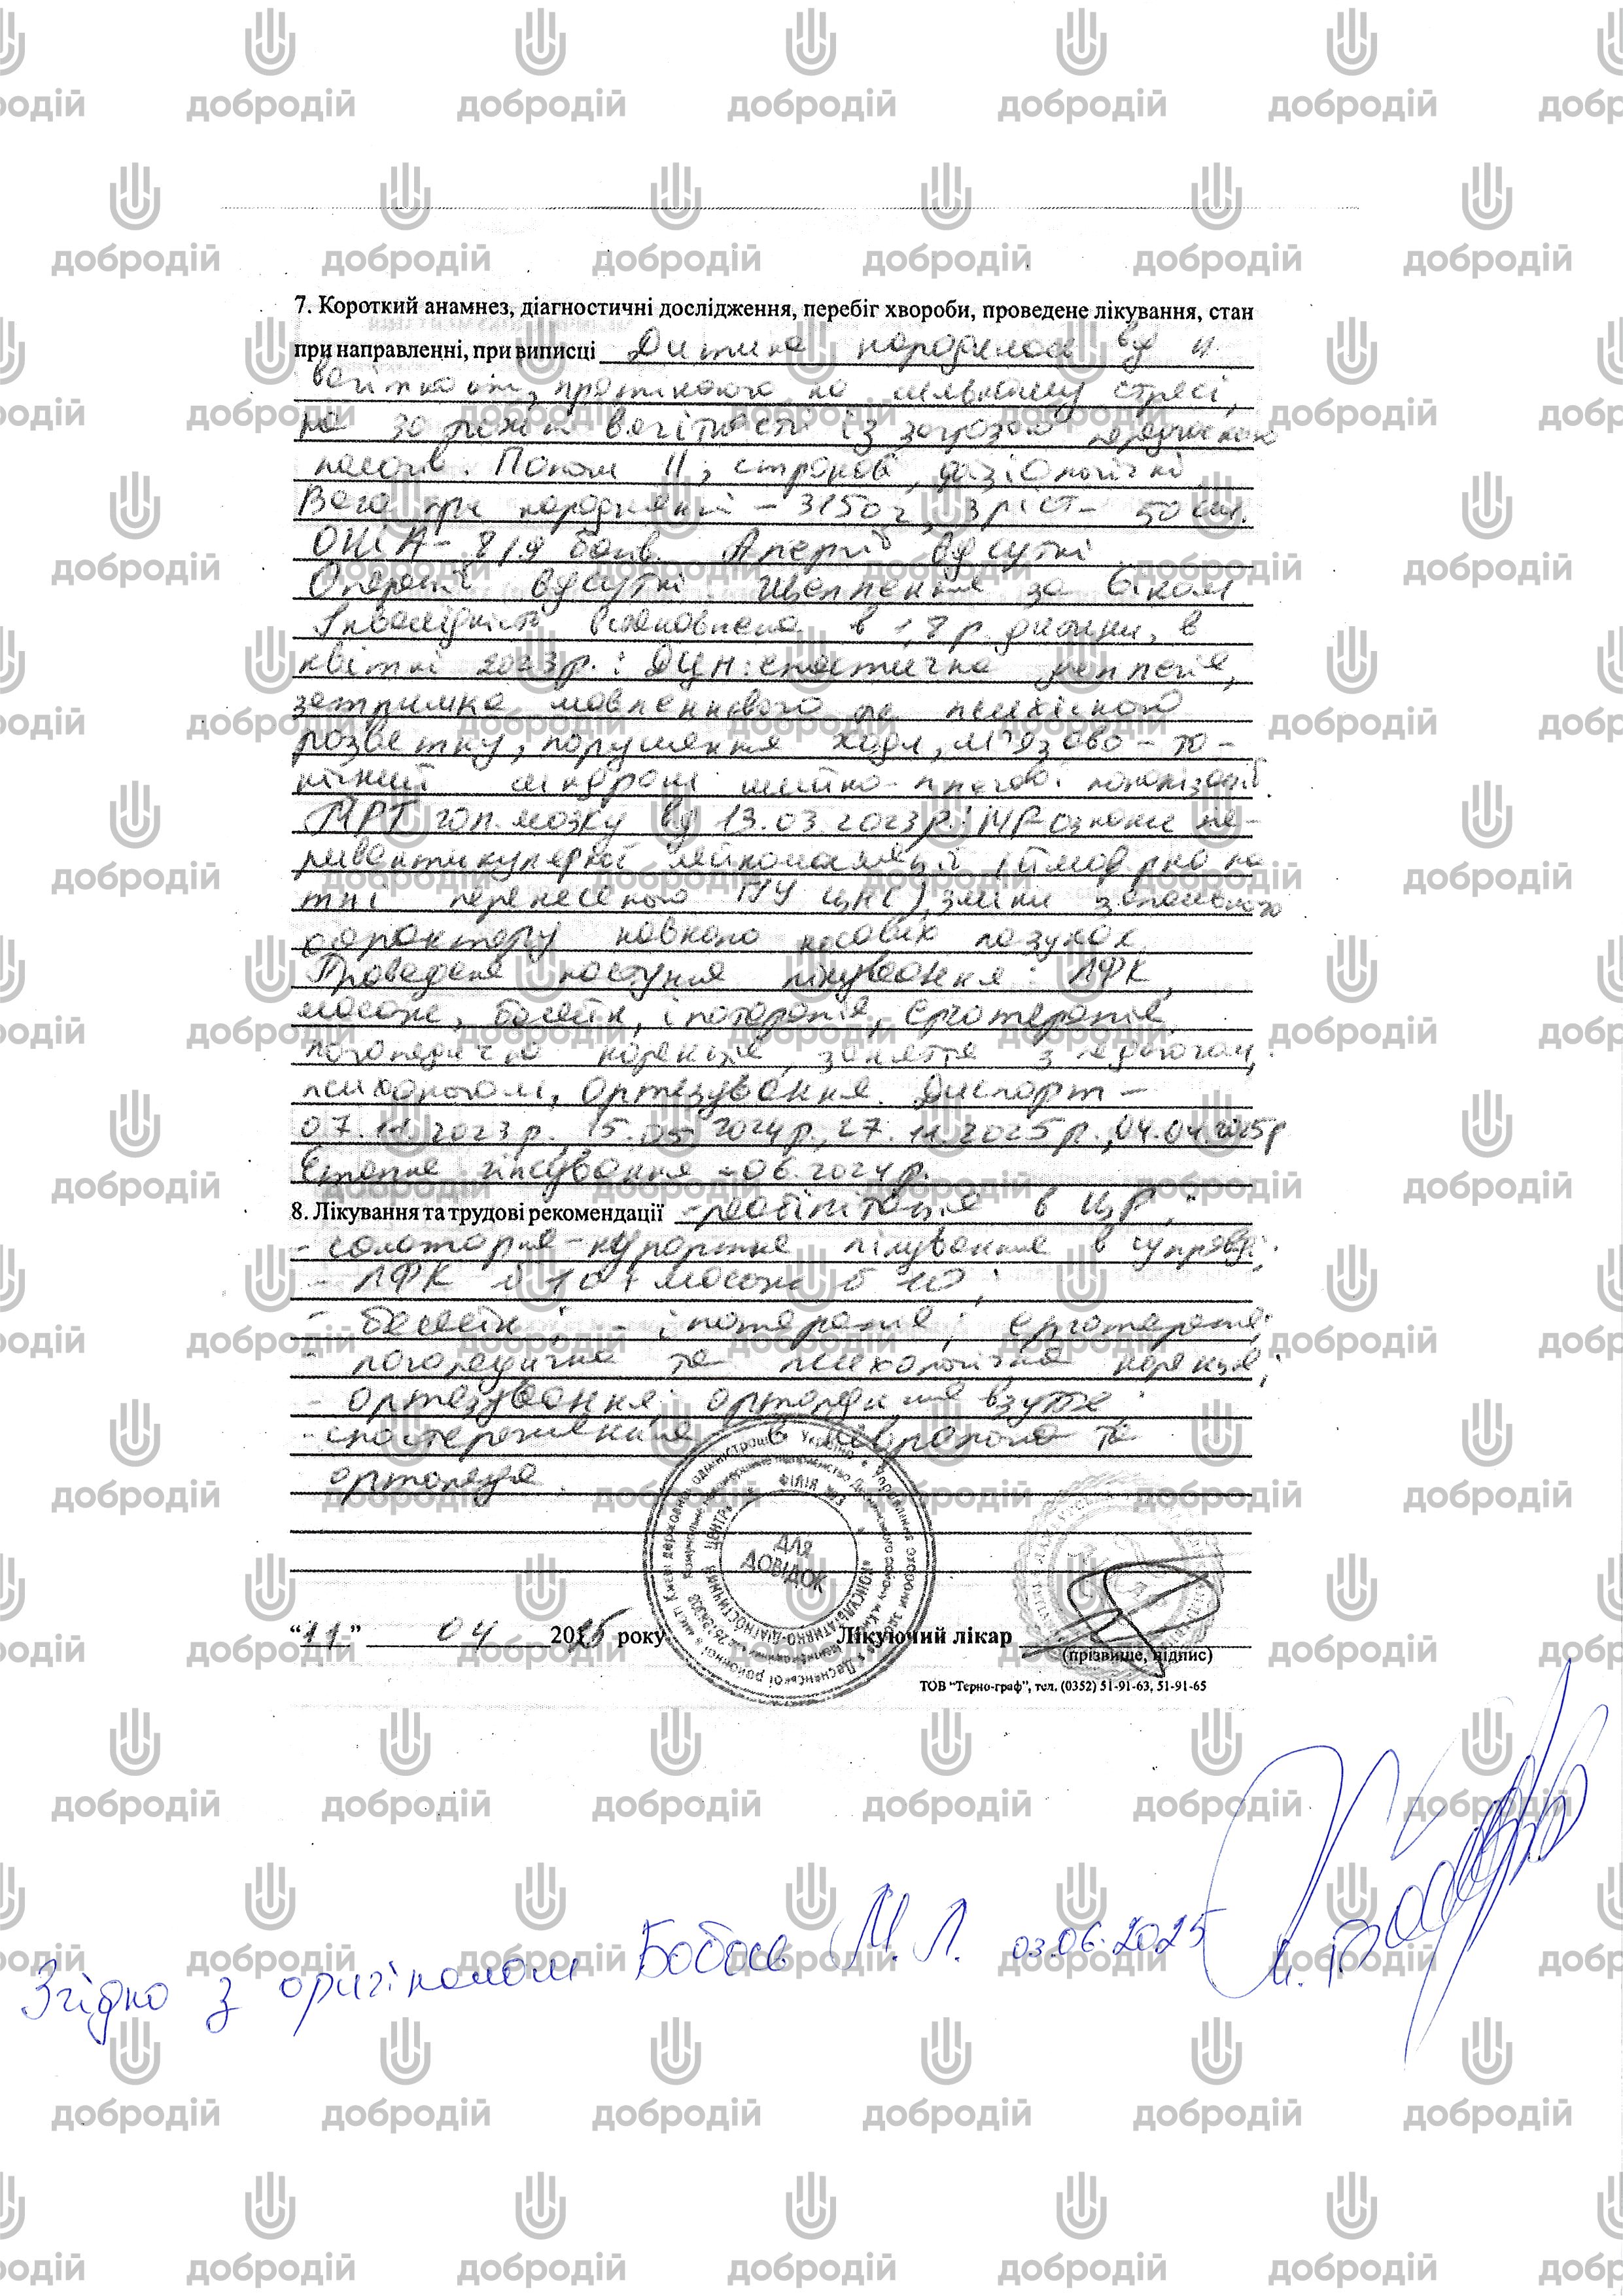 7. Короткий анамнез, діагностичні дослідження, перебіг хвороби, проведене лікування, стан
при направленні, при виписці Дитина народилася від II
вагітності, на сильному стресі,
на 30 тижні вагітності із загрозою передчасних
пологів. Пологи II, строкові, фізіологічні
Вага при народженні - 3150 г, зріст - 50 см.
ОША - 8/9 балів. Алергії відсутні
Операції відсутні. Щеплення за віком
Інвалідність встановлена в 1,8 р. дитини, в
квітні 2023р.: ДЦП: спастична диплегія,
затримка мовленнєвого та психічного
розвитку, порушення ходи, м'язово-то-
нічний синдром шийно-плечової локалізації.
МРТ гол. мозку від 13.03.2023р.: МР ознаки пе-
ривентикулярної лейкомаляції (ймовірно на
тлі перенесеного ГІУ ЦНС), зміни запального
характеру навколо носових пазухах
Проведене наступне лікування: ЛФК,
масаж, басейн, іпотерапія, ерготерапія,
логопедична корекція, заняття з педагогом,
психологом, ортезування. Диспорт -
07.11.2023р., 15.05.2024р., 27.11.2025р., 04.04.2025р
Етапне гіпсування - 06.2024р.
8. Лікування та трудові рекомендації - реабілітація в ЦР;
- санаторне-курортне лікування в супроводі;
- ЛФК №10 + масаж №10;
- басейн; - іпотерапія; ерготерапія;
- логопедична та психологічна корекція;
- ортезування; ортопедичне взуття
- спостереження в невролога та
ортопеда.
"11" 04 2025 року Лікуючий лікар
(прізвище, підпис)
ТОВ "Терно-граф", тел. (0352) 51-91-63, 51-91-65
ДЛЯ
ДОВІДОК
ФІЛІЯ №3
«КОНСУЛЬТАТИВНО-ДІАГНОСТИЧНИЙ ЦЕНТР»
Згідно з оригіналом Бобось М. Л. 03.06.2025
добродій